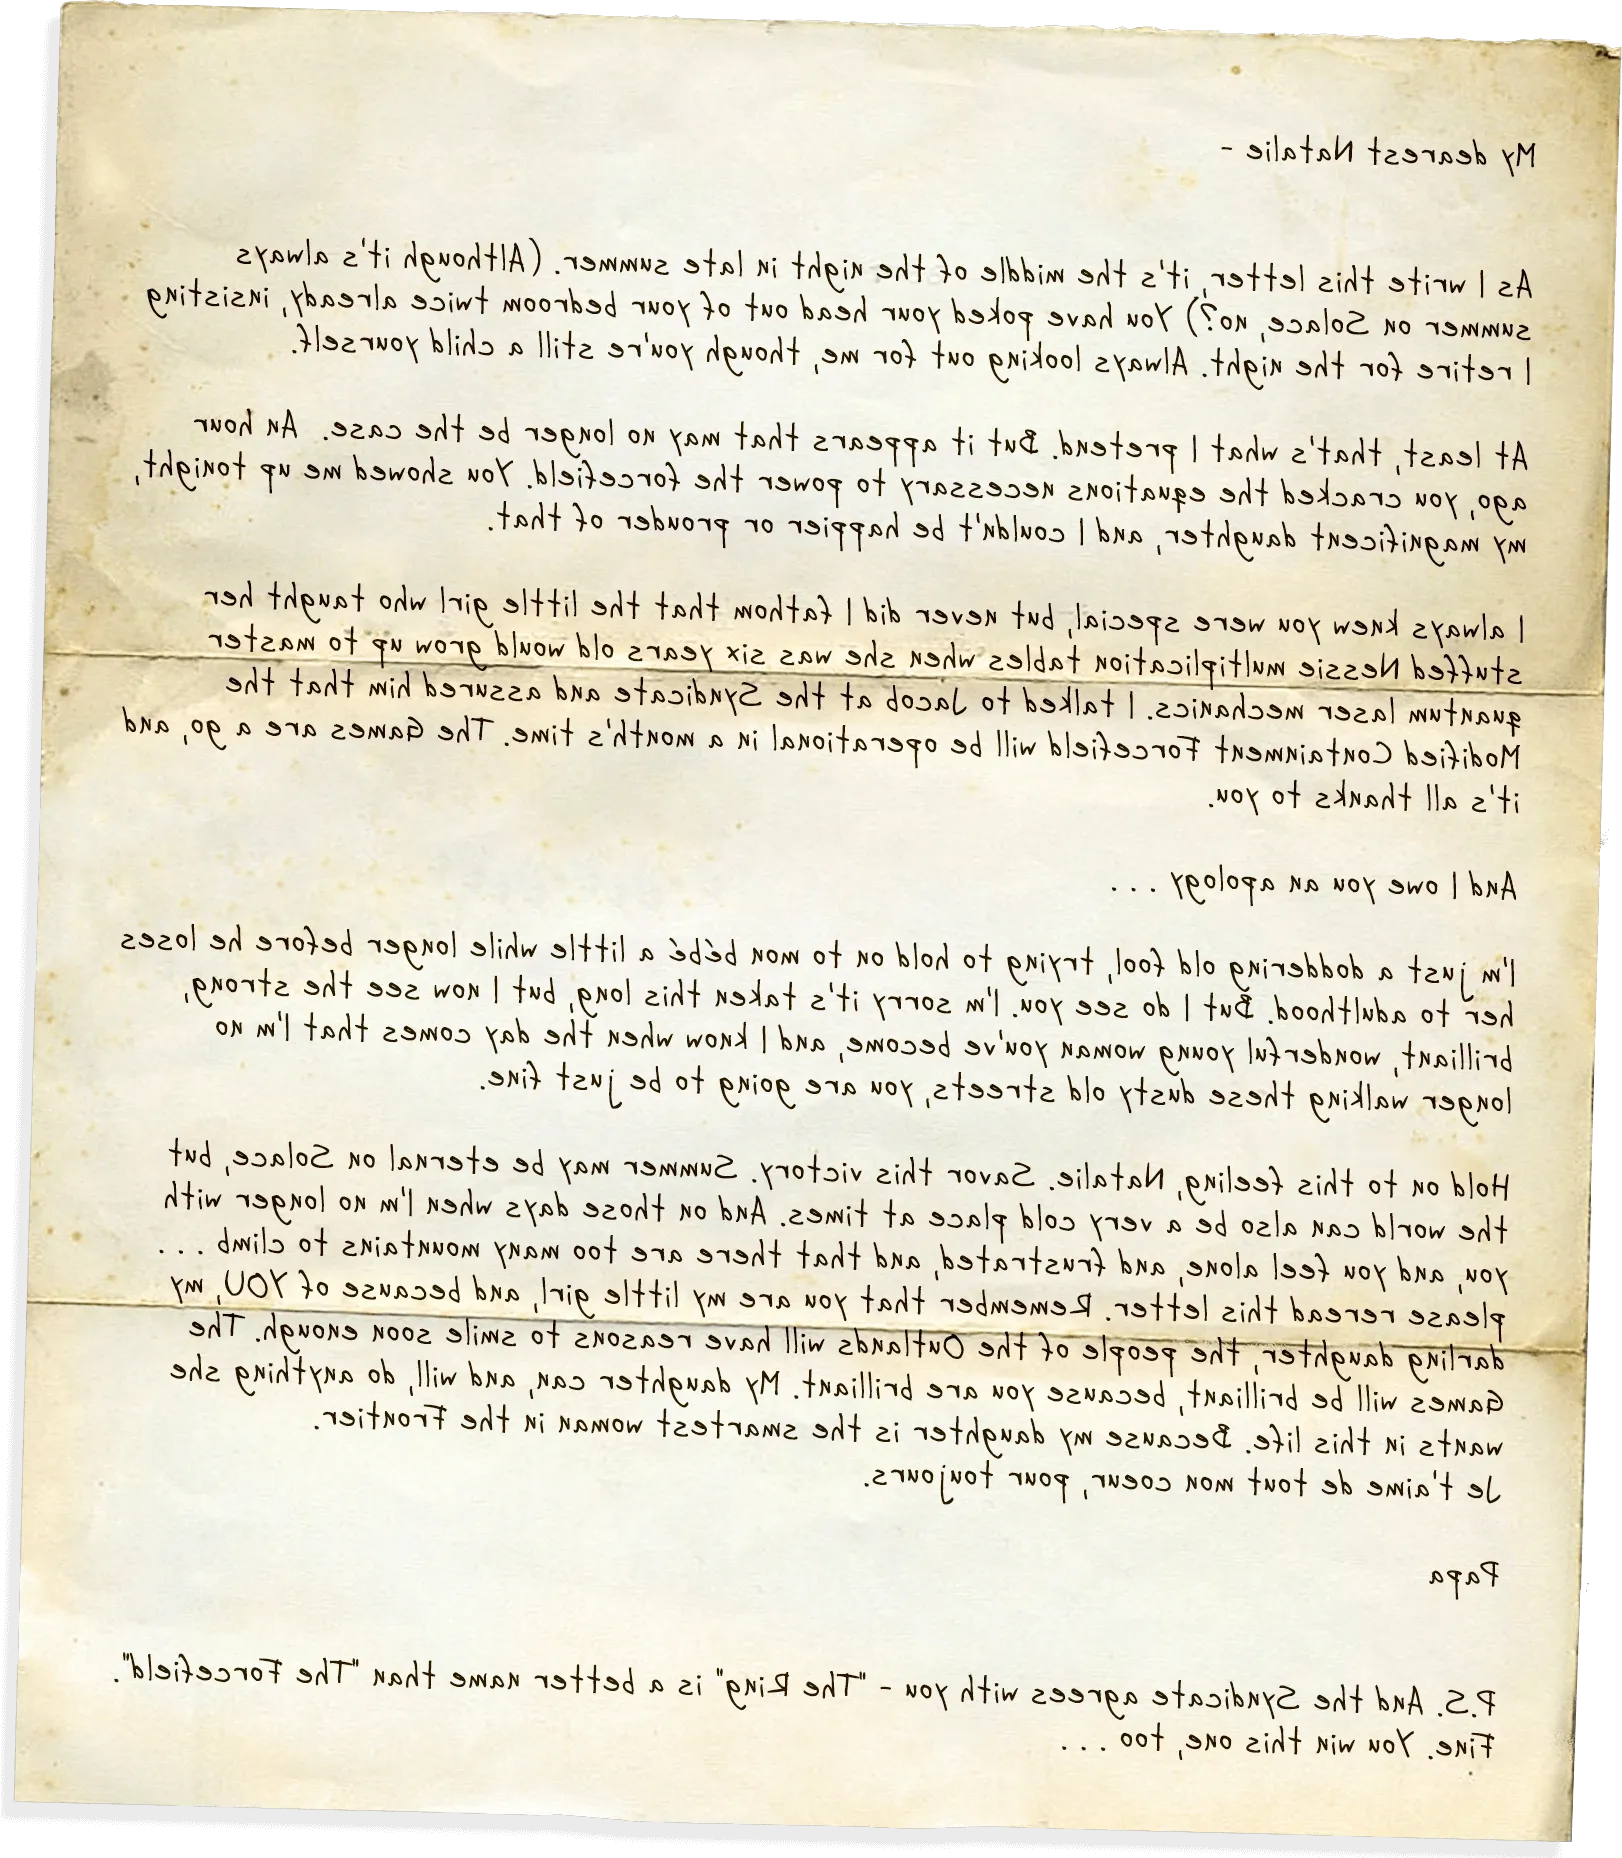 My dearest Natalie -
As I write this letter, it's the middle of the night in late summer. (Although it's always
summer on Solace, no?) You have poked your head out of your bedroom twice already, insisting
I retire for the night. Always looking out for me, though you're still a child yourself.
At least, that's what I pretend. But it appears that may no longer be the case. An hour
ago, you cracked the equations necessary to power the forcefield. You showed me up tonight,
my magnificent daughter, and I couldn't be happier or prouder of that.
I always knew you were special, but never did I fathom that the little girl who taught her
stuffed Nessie multiplication tables when she was six years old would grow up to master
quantum laser mechanics. I talked to Jacob at the Syndicate and assured him that the
Modified Containment Forcefield will be operational in a month's time. The Games are a go, and
it's all thanks to you.
And I owe you an apology ...
I'm just a doddering old fool, trying to hold on to mon bébé a little while longer before he loses
her to adulthood. But I do see you. I'm sorry it's taken this long, but I now see the strong,
brilliant, wonderful young woman you've become, and I know when the day comes that I'm no
longer walking these dusty old streets, you are going to be just fine.
Hold on to this feeling, Natalie. Savor this victory. Summer may be eternal on Solace, but
the world can also be a very cold place at times. And on those days when I'm no longer with
you, and you feel alone, and frustrated, and that there are too many mountains to climb ...
please reread this letter. Remember that you are my little girl, and because of YOU, my
darling daughter, the people of the Outlands will have reasons to smile soon enough. The
Games will be brilliant, because you are brilliant. My daughter can, and will, do anything she
wants in this life. Because my daughter is the smartest woman in the Frontier.
Je t'aime de tout mon coeur, pour toujours.
Papa
P.S. And the Syndicate agrees with you - "The Ring" is a better name than "The Forcefield".
Fine. You win this one, too ...